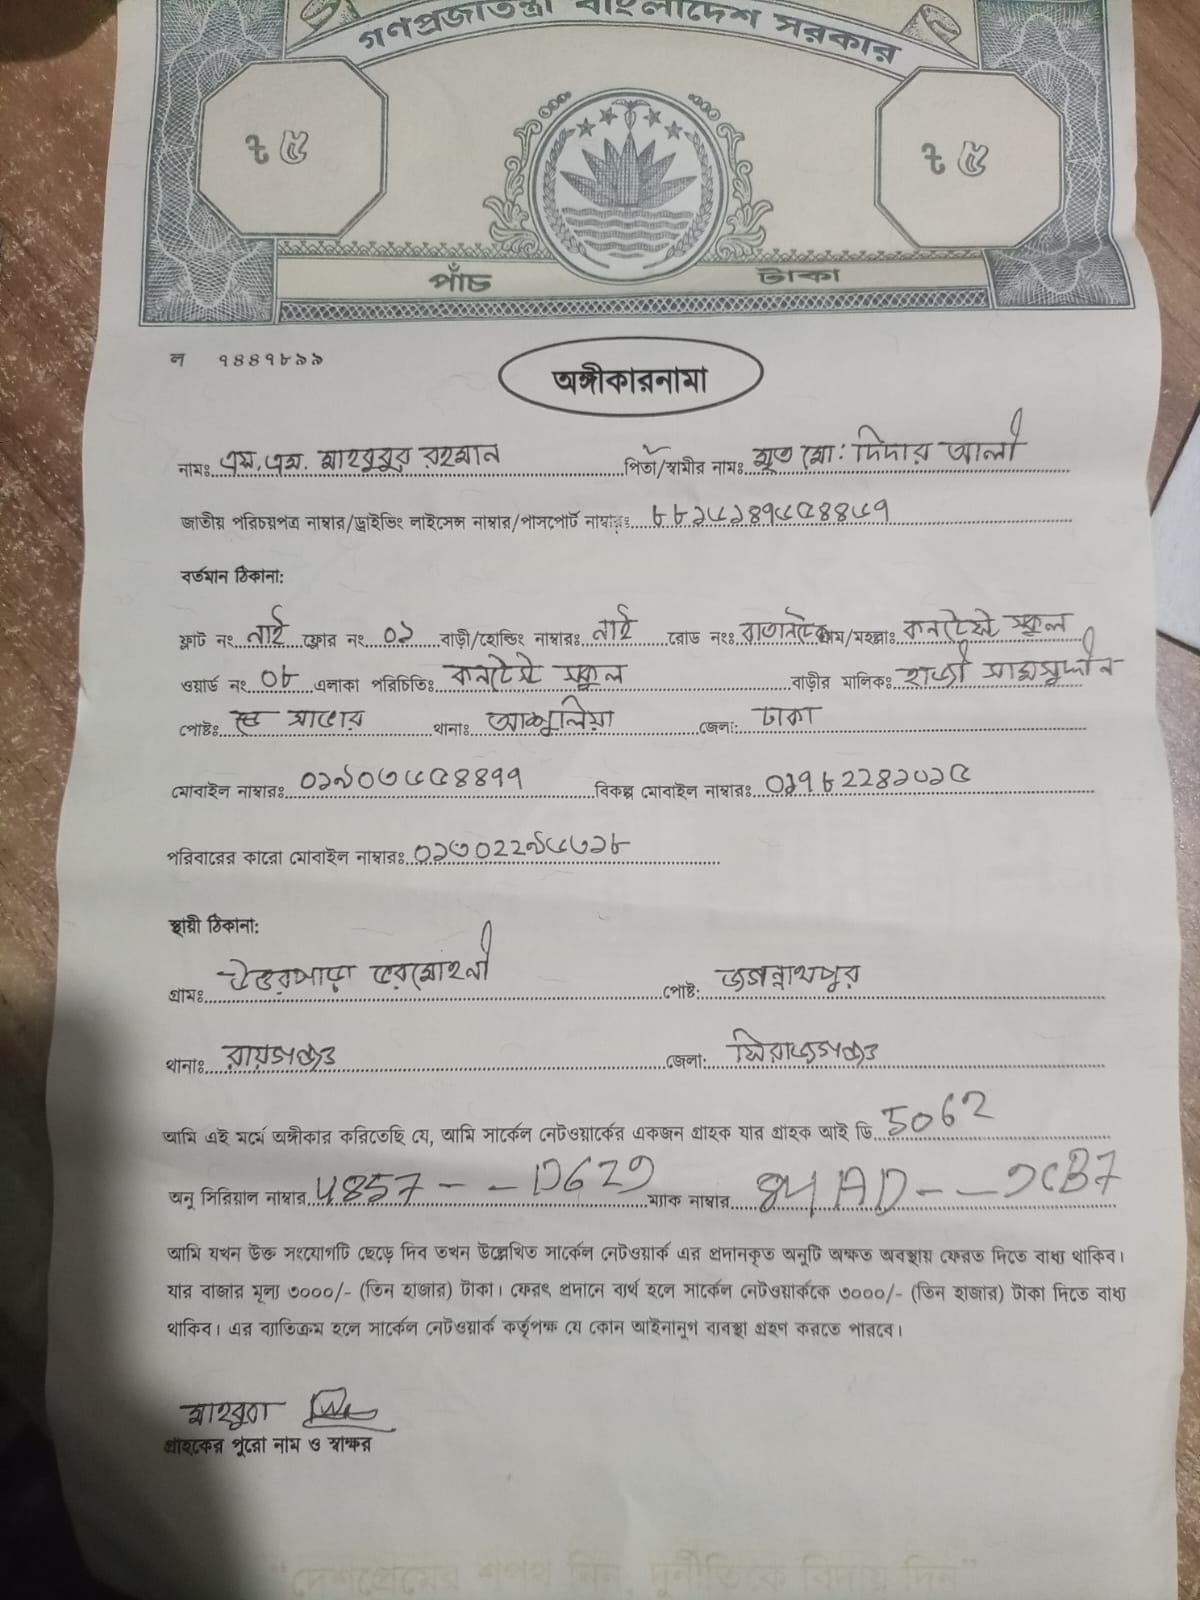 গণপ্রজাতন্ত্রী বাংলাদেশ সরকার
৳ ৫ ৳ ৫
পাঁচ টাকা
ল ৭৪৪৭৮৯৯
অঙ্গীকারনামা
নামঃ এস.এম. মাহবুবুর রহমান পিতা/স্বামীর নামঃ মৃত মো: দিদার আলী
জাতীয় পরিচয়পত্র নাম্বার/ড্রাইভিং লাইসেন্স নাম্বার/পাসপোর্ট নাম্বারঃ
বর্তমান ঠিকানা:
ফ্লাট নং নাই ফ্লোর নং ০১ বাড়ী/হোল্ডিং নাম্বারঃ নাই রোড নংঃ গ্রাম/মহল্লাঃ স্কুল
ওয়ার্ড নং ০৮ এলাকা পরিচিতিঃ স্কুল বাড়ীর মালিকঃ হাজী
পোষ্টঃ সাভার থানাঃ আশুলিয়া জেলা: ঢাকা
মোবাইল নাম্বারঃ বিকল্প মোবাইল নাম্বারঃ
পরিবারের কারো মোবাইল নাম্বারঃ
স্থায়ী ঠিকানা:
গ্রামঃ পোষ্ট: জগন্নাথপুর
থানাঃ রায়গঞ্জ জেলা: সিরাজগঞ্জ
আমি এই মর্মে অঙ্গীকার করিতেছি যে, আমি সার্কেল নেটওয়ার্কের একজন গ্রাহক যার গ্রাহক আই ডি 5062
অনু সিরিয়াল নাম্বার ম্যাক নাম্বার
আমি যখন উক্ত সংযোগটি ছেড়ে দিব তখন উল্লেখিত সার্কেল নেটওয়ার্ক এর প্রদানকৃত অনুটি অক্ষত অবস্থায় ফেরত দিতে বাধ্য থাকিব।
যার বাজার মূল্য ৩০০০/- (তিন হাজার) টাকা। ফেরৎ প্রদানে ব্যর্থ হলে সার্কেল নেটওয়ার্ককে ৩০০০/- (তিন হাজার) টাকা দিতে বাধ্য
থাকিব। এর ব্যতিক্রম হলে সার্কেল নেটওয়ার্ক কর্তৃপক্ষ যে কোন আইনানুগ ব্যবস্থা গ্রহণ করতে পারবে।
গ্রাহকের পুরো নাম ও স্বাক্ষর
"দেশপ্রেমের শপথ নিন, দুর্নীতিকে বিদায় দিন"